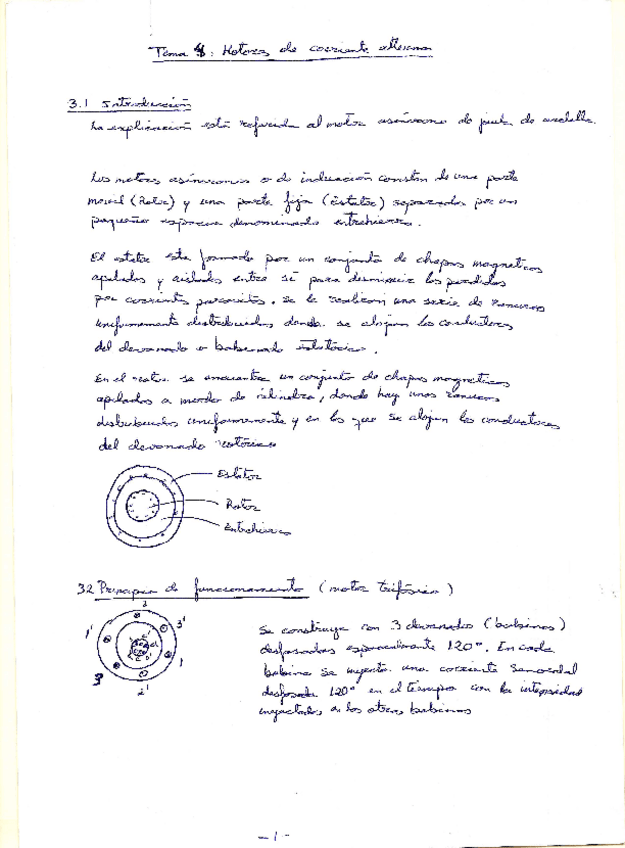 Tema 4: Motores de corriente alterna
3.1 Introducción
La explicación está referida al motor asíncrono de jaula de ardilla.
Los motores asíncronos o de inducción constan de una parte
movil (Rotor) y una parte fija (éstator) separados por un
pequeño espacio denominado entrehierro.
El estator esta formado por un conjunto de chapas magneticas
apiladas y aisladas entre sí para disminuir las perdidas
por corrientes parasitas. Se le realizan una serie de ranuras
uniformemente distribuidas donde se alojan los conductores
del devanado o bobinado estatórico.
En el rotor se encuentra un conjunto de chapas magneticas
apiladas a modo de cilindro, donde hay unas ranuras
distribuidas uniformemente y en las que se alojan los conductores
del devanado rotórico
Estator
Rotor
Entrehierro
3.2 Principio de funcionamiento (motor trifásico)
1' 2 3'
3 2' 1
Se construye con 3 devanados (bobinas)
desfasadas espacialmente 120º. En cada
bobina se inyecta una corriente senoidal
desfasada 120º en el tiempo con la intensidad
inyectada a las otras bobinas
- 1 -